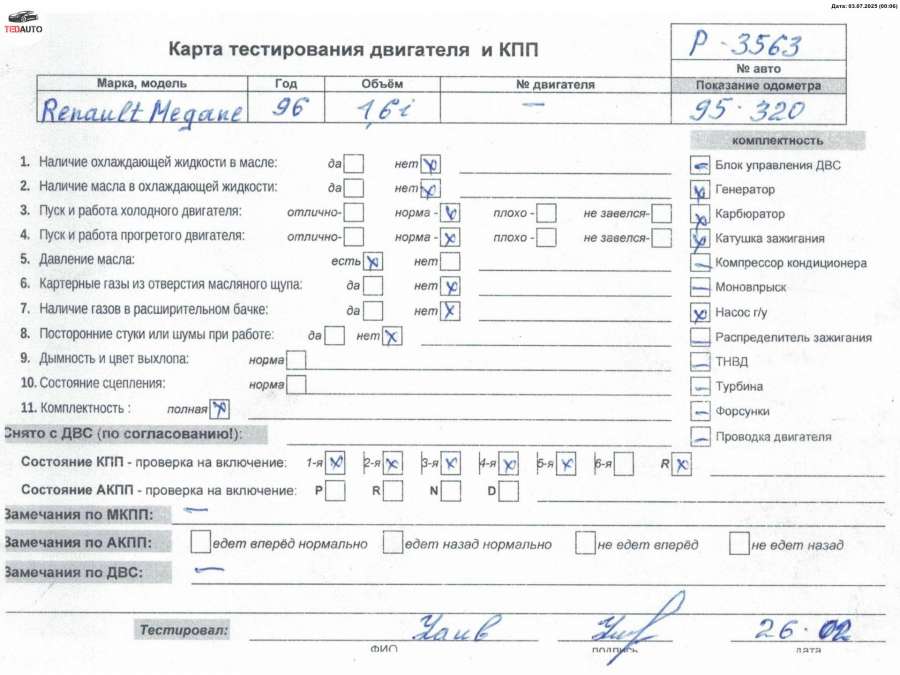 Дата: 03.07.2025 (00:06)
TEDAUTO
Карта тестирования двигателя и КПП
P-3563
№ авто
Марка, модель Год Объём № двигателя Показание одометра
Renault Megane 96 1,6i — 95·320
комплектность
1. Наличие охлаждающей жидкости в масле: да нет x
2. Наличие масла в охлаждающей жидкости: да нет x
3. Пуск и работа холодного двигателя: отлично- норма - x плохо - не завелся-
4. Пуск и работа прогретого двигателя: отлично- норма - x плохо - не завелся-
5. Давление масла: есть x нет
6. Картерные газы из отверстия масляного щупа: да нет x
7. Наличие газов в расширительном бачке: да нет x
8. Посторонние стуки или шумы при работе: да нет x
9. Дымность и цвет выхлопа: норма
10. Состояние сцепления: норма
11. Комплектность : полная x
— Блок управления ДВС
x Генератор
x Карбюратор
x Катушка зажигания
— Компрессор кондиционера
— Моновпрыск
x Насос г/у
— Распределитель зажигания
— ТНВД
— Турбина
— Форсунки
— Проводка двигателя
Снято с ДВС (по согласованию!):
Состояние КПП - проверка на включение: 1-я x 2-я x 3-я x 4-я x 5-я x 6-я R x
Состояние АКПП - проверка на включение: P R N D
Замечания по МКПП: —
Замечания по АКПП: едет вперёд нормально едет назад нормально не едет вперёд не едет назад
Замечания по ДВС: —
Тестировал: 26·02
ФИО подпись дата